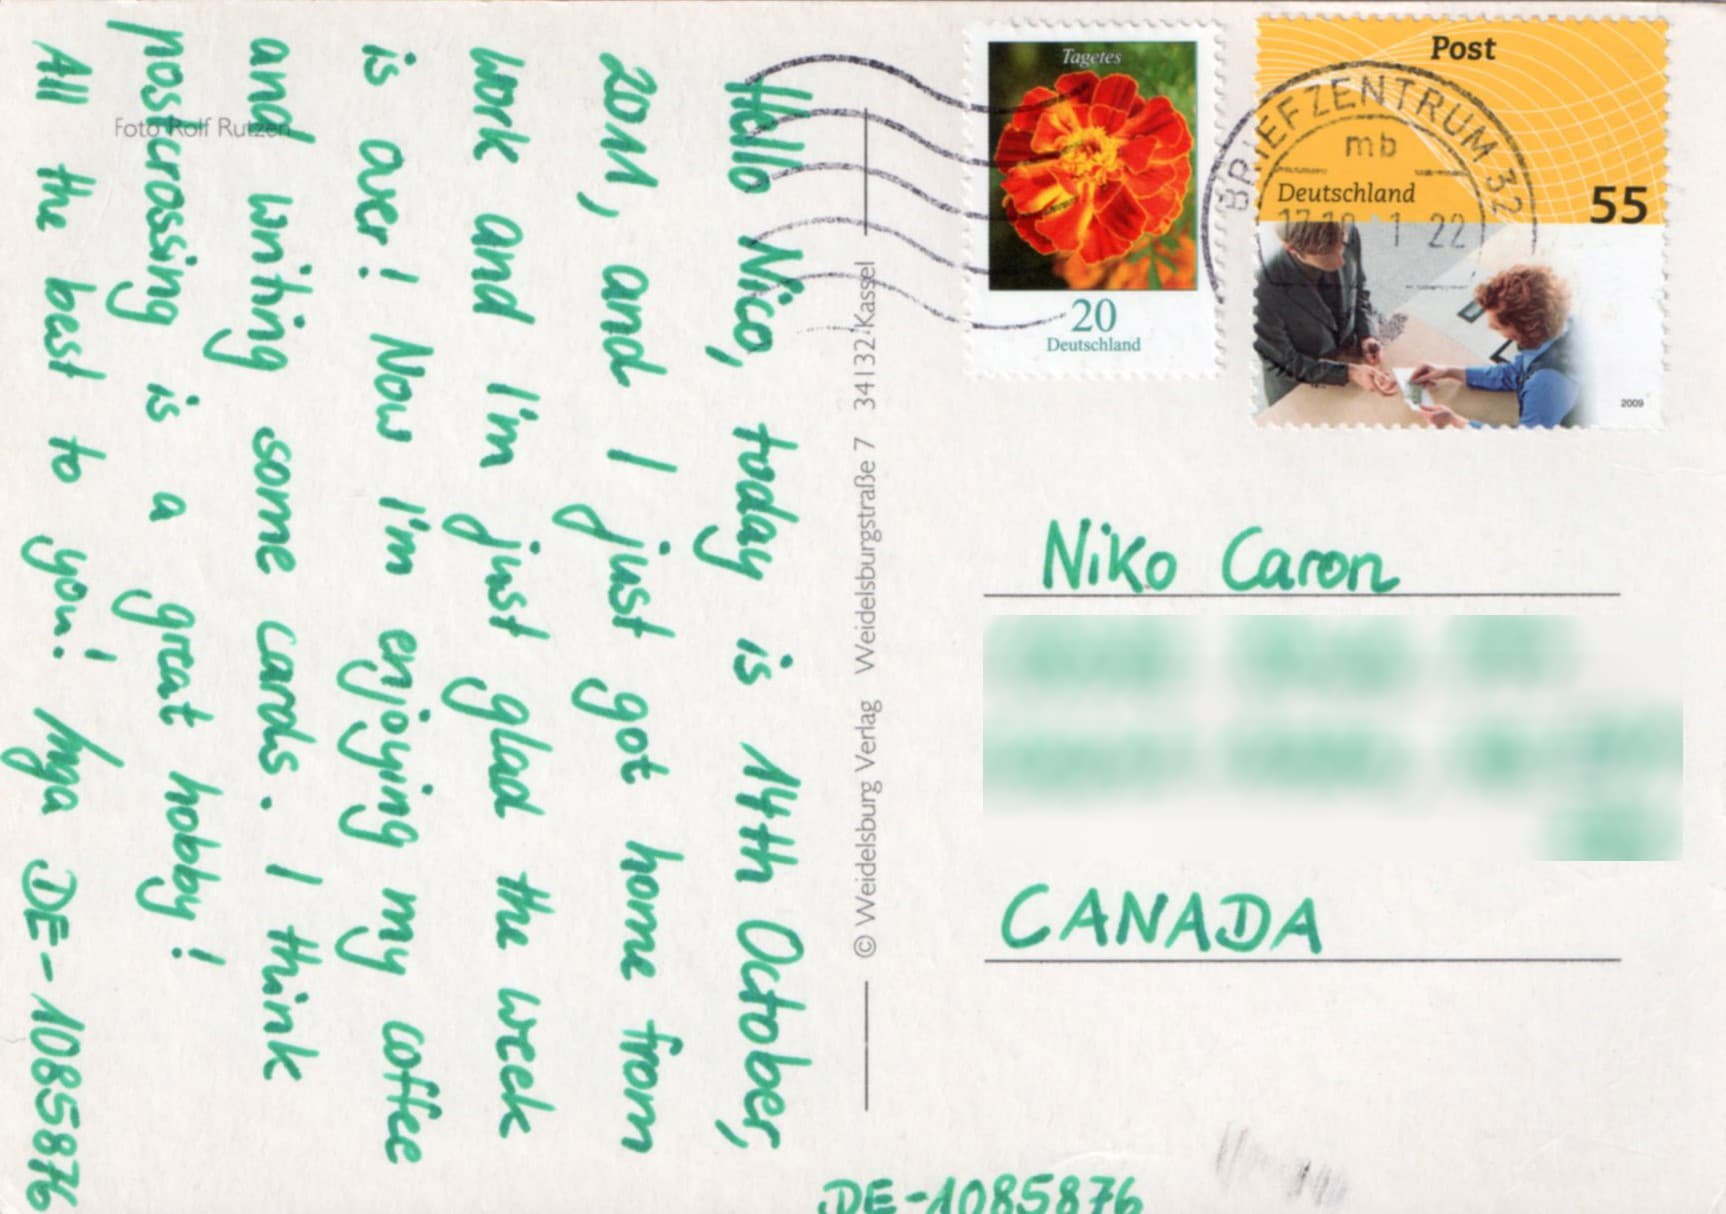 Hello Nico, today is 14th October,
2011, and I just got home from
work and I'm just glad the week
is over! Now I'm enjoying my coffee
and writing some cards. I think
postcrossing is a great hobby!
All the best to you! Inga DE-1085876
Foto Rolf Rutzen
© Weidelsburg Verlag Weidelsburgstraße 7 34132 Kassel
Tagetes
20
Deutschland
Post
Deutschland
55
2009
BRIEFZENTRUM 32
mb
1 22
Niko Caron
CANADA
DE-1085876